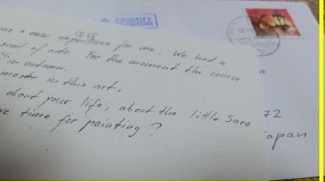 a new experience for me. We had a
school of arts. For the moment the course
in autumn.
semester in this art.
about your life, about the little Sara
time for painting?
72
apan